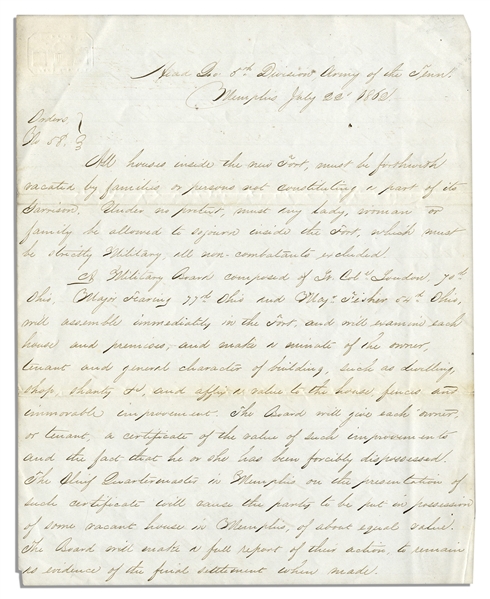 Head Qrs 5th Division Army of the Tenn.
Memphis July 22 1862.
Orders }
No 58. }
All houses inside the new Fort, must be forthwith
vacated by families or persons not constituting a part of its
Garrison. Under no pretext, must any lady, woman or
family be allowed to sojourn inside the Fort, which must
be strictly Military, all non-combatants excluded.
A Military Board composed of Lt. Col. Loudon, 70th
Ohio, Major Fearing 77th Ohio and Maj. Fisher 54th Ohio,
will assemble immediately in the Fort, and will examine each
house and premises, and make a minute of the owner,
tenant and general character of building, such as dwelling,
shop, shanty &c, and affix a value to the house, fences and
immovable improvement. The Board will give each owner,
or tenant, a certificate of the value of such improvements
and the fact that he or she has been forcibly dispossessed.
The Chief Quartermaster in Memphis on the presentation of
such certificate will cause the party to be put in possession
of some vacant house in Memphis, of about equal value.
The Board will make a full report of their action, to remain
as evidence of the final settlement when made.